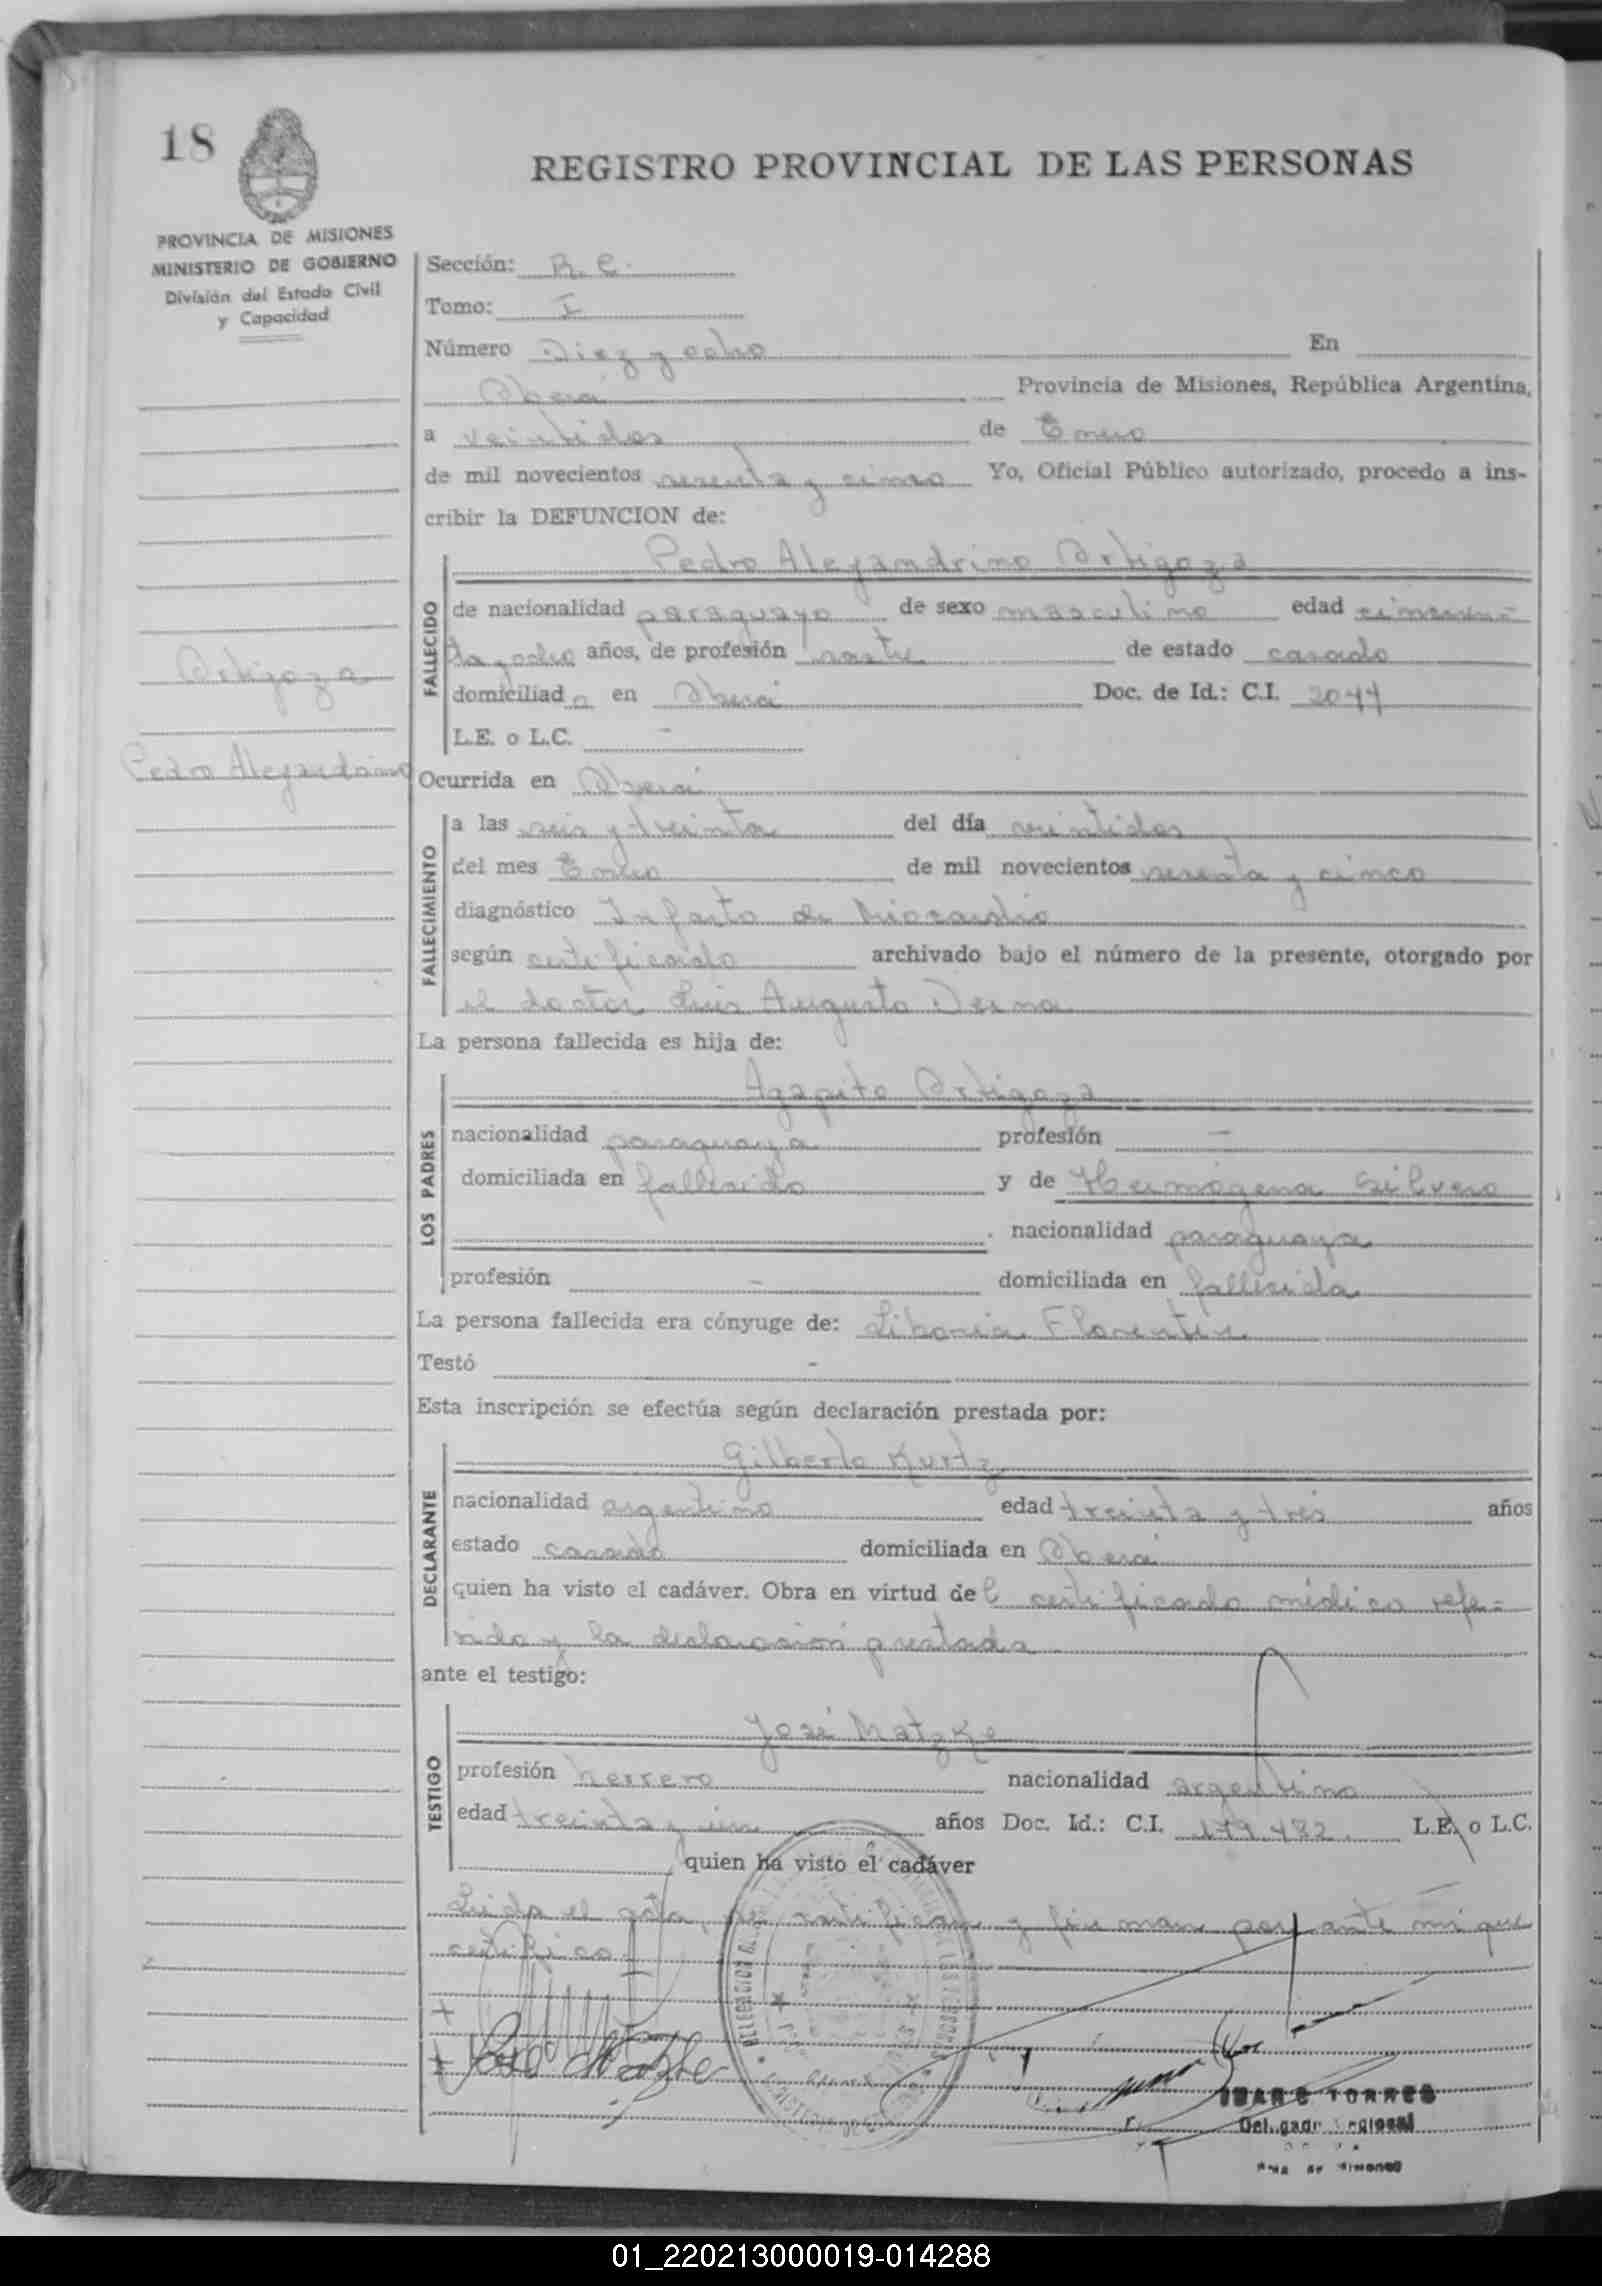 18
REGISTRO PROVINCIAL DE LAS PERSONAS
PROVINCIA DE MISIONES
MINISTERIO DE GOBIERNO
División del Estado Civil
y Capacidad
Sección: R. C.
Tomo: I
Número Diez y ocho En
Oberá Provincia de Misiones, República Argentina,
a veintidos de Enero
de mil novecientos sesenta y cinco Yo, Oficial Público autorizado, procedo a ins-
cribir la DEFUNCION de:
Pedro Alejandrino Ortigoza
FALLECIDO
de nacionalidad paraguayo de sexo masculino edad cincuen=
ta y ocho años, de profesión sastre de estado casado
Ortigoza
domiciliado en Oberá Doc. de Id.: C.I. 2044
L.E. o L.C. -
Pedro Alejandrino
Ocurrida en Oberá
FALLECIMIENTO
a las seis y treinta del día veintidos
del mes Enero de mil novecientos sesenta y cinco
diagnóstico Infarto de Miocardio
según certificado archivado bajo el número de la presente, otorgado por
el doctor Luis Augusto Derna
La persona fallecida es hija de:
LOS PADRES
Agapito Ortigoza
nacionalidad paraguaya profesión -
domiciliada en fallecido y de Hermógena Silvero
nacionalidad paraguaya
profesión - domiciliada en fallecida
La persona fallecida era cónyuge de: Liboria Florentin
Testó -
Esta inscripción se efectúa según declaración prestada por:
DECLARANTE
Gilberto Kurtz
nacionalidad argentino edad treinta y tres años
estado casado domiciliada en Oberá
quien ha visto el cadáver. Obra en virtud del certificado médico refe=
rido y la declaración prestada
ante el testigo:
TESTIGO
José Matzke
profesión herrero nacionalidad argentino
edad treinta y un años Doc. Id.: C.I. 179.482. L.E. o L.C.
quien ha visto el cadáver
Leida el acta, la ratifican y firman por ante mi que
certifico
José Matzke
TORRES
01_220213000019-014288